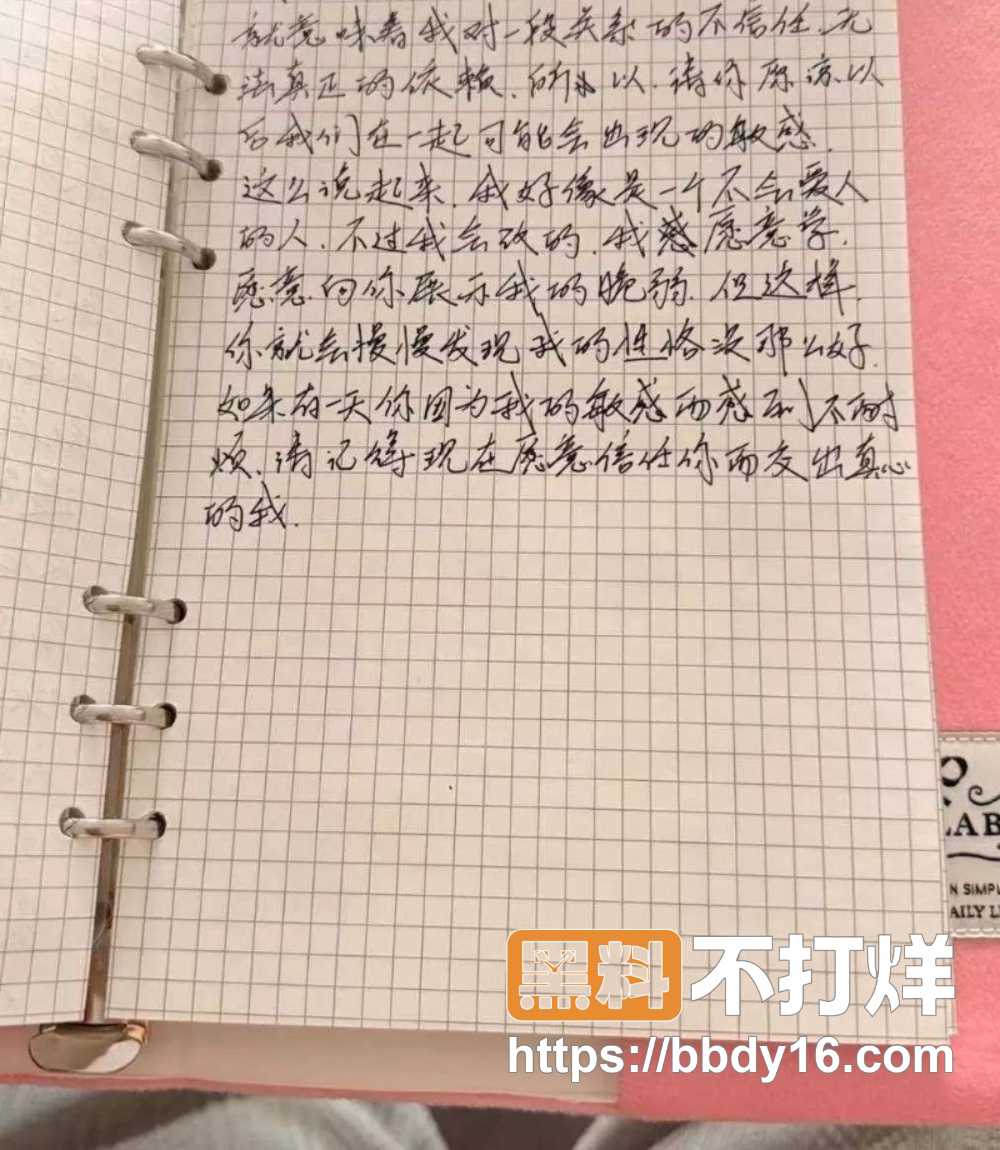 就意味着我对一段关系的不信任.无
法真正的依赖.所以.请你原谅.以
后我们在一起可能会出现的敏感.
这么说起来.我好像是一个不会爱人
的人.不过我会改的.我愿意学.
愿意.向你展示我的脆弱.但这样.
你就会慢慢发现我的性格没那么好.
如果有一天你因为我的敏感而感到不耐
烦.请记得现在愿意信任你而交出真心
的我.
LAB
N SIMPL
AILY L
黑料不打烊
https://bbdy16.com